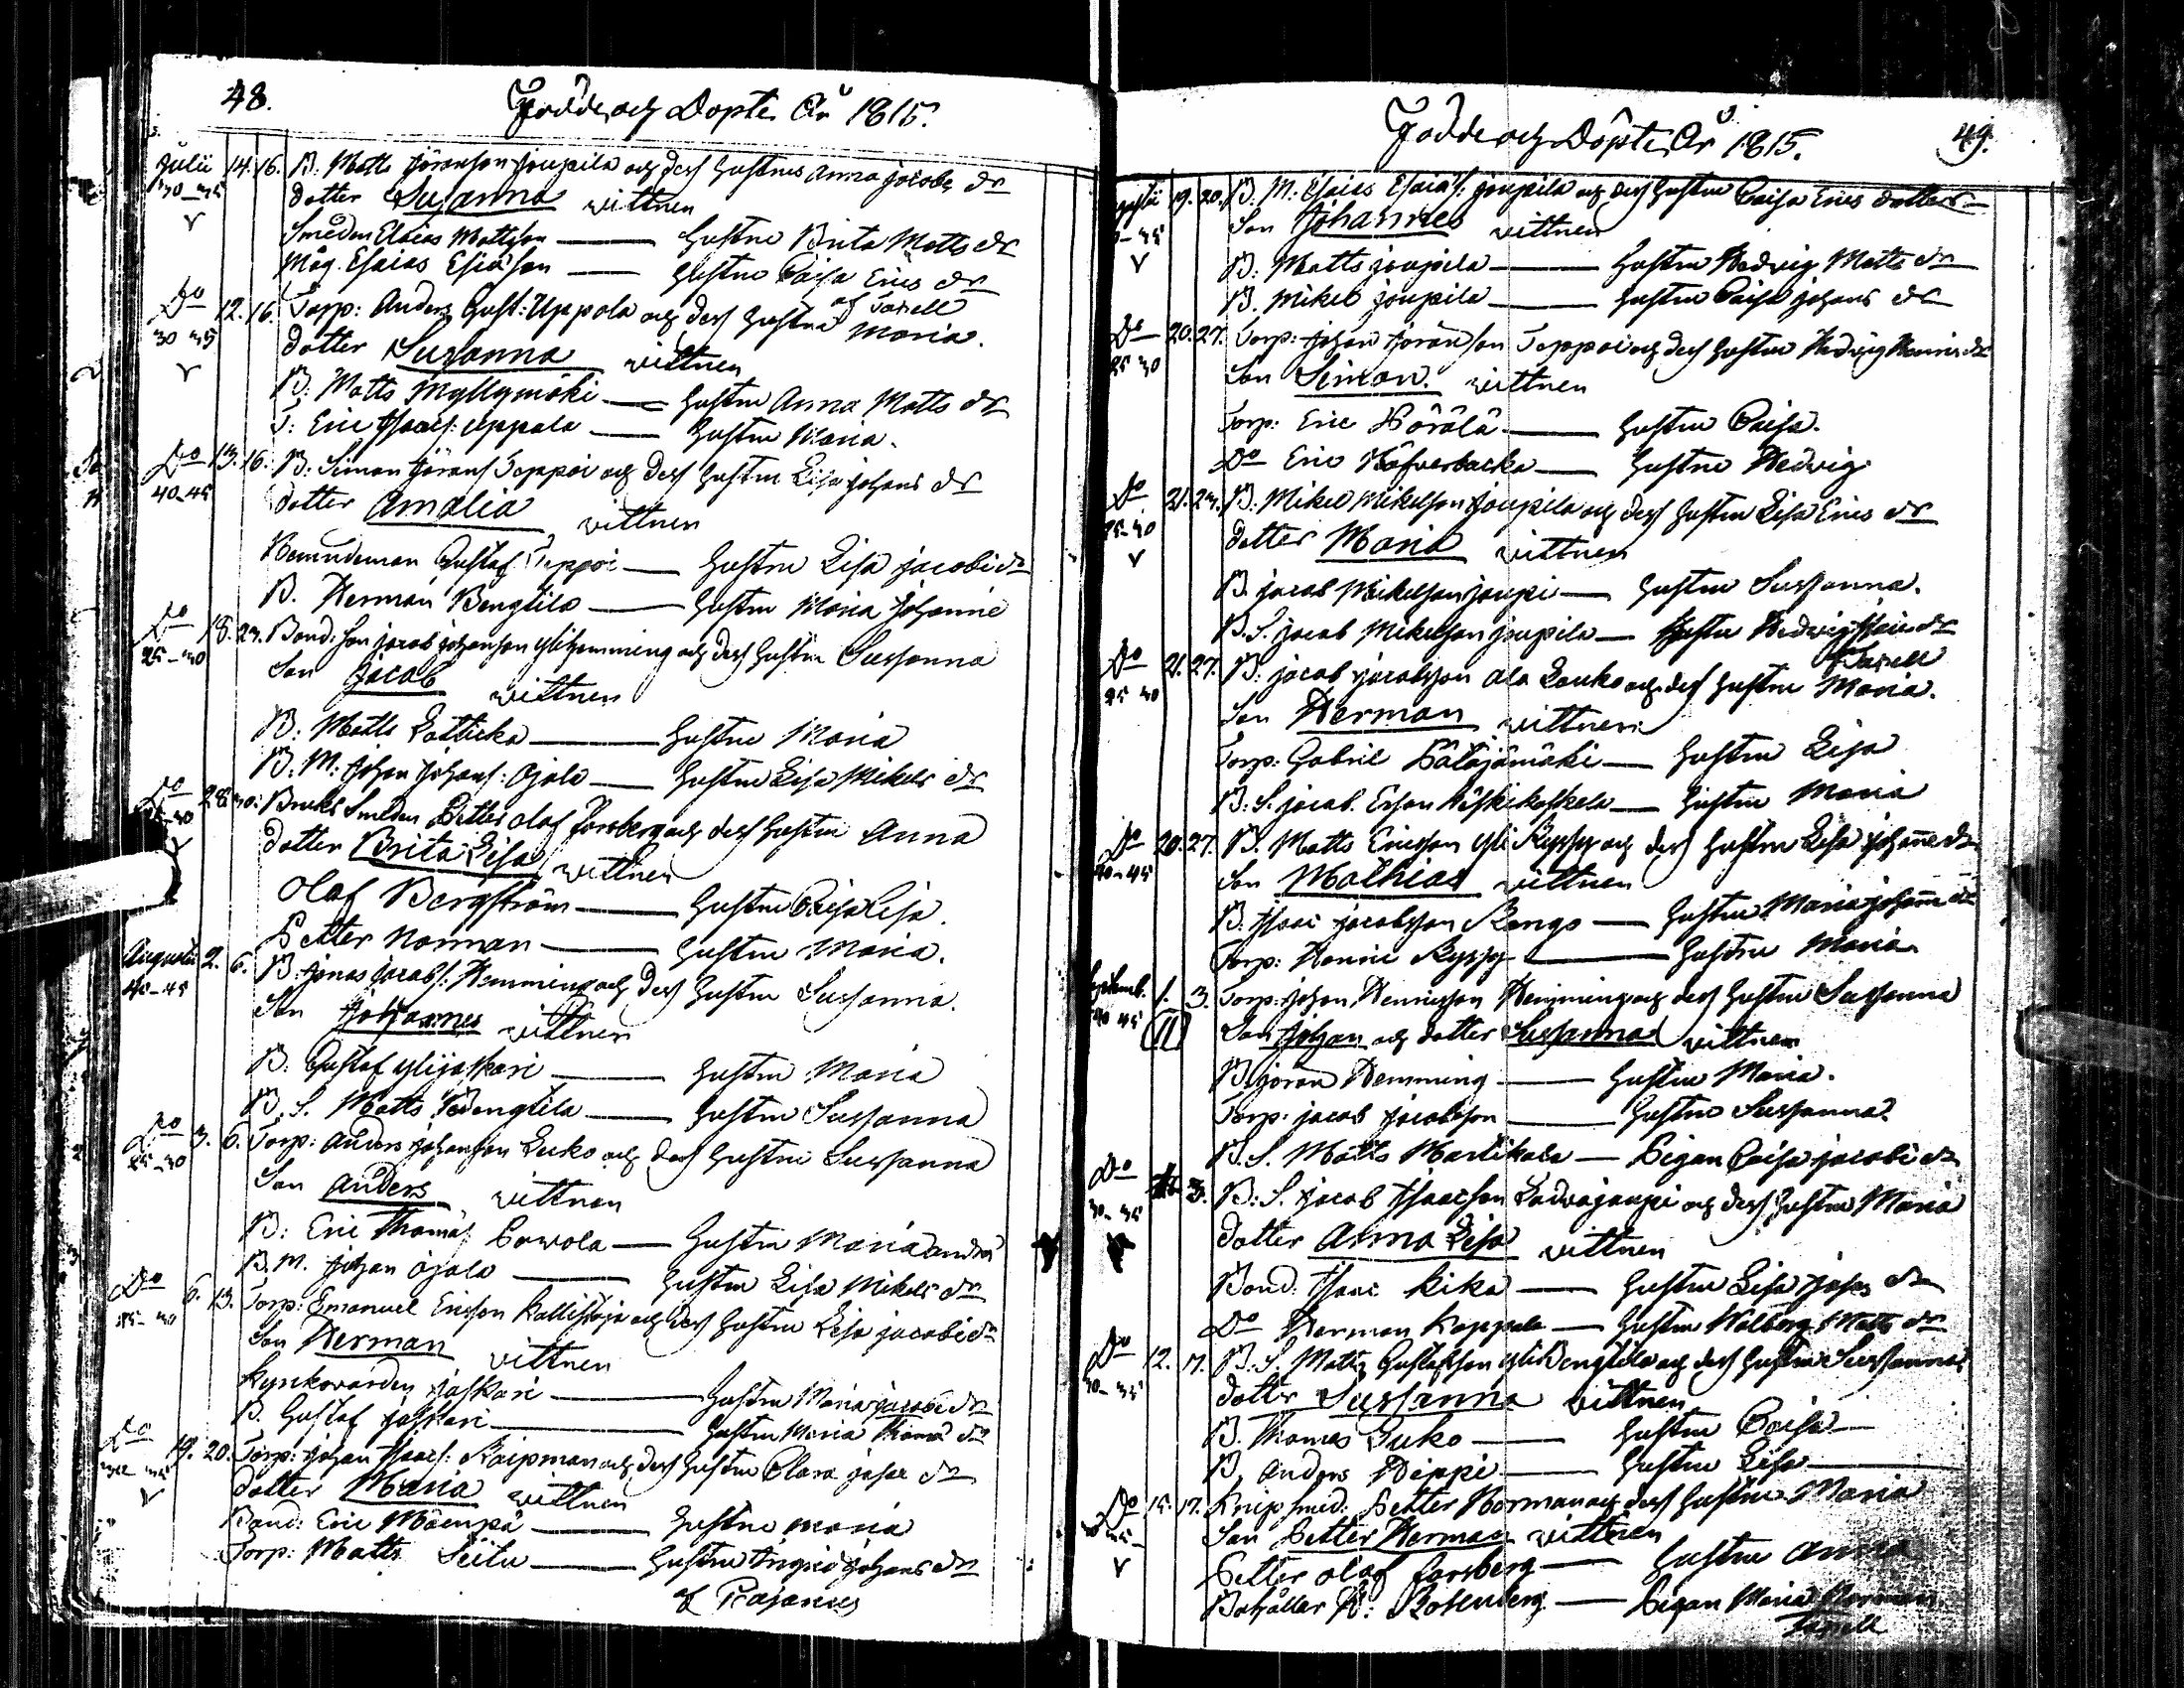 48.
Födde och Döpte År 1815.
Julii 14. 16. B. Matts Jöransson Joupila och dess hustru Anna Jacobs dr
30-35 dotter Susanna vittnen
Smeden Elias Mattsson — hustru Brita Matts dr
Måg. Esaias Esiason — hustru Caisa Erics dr
Do 12. 16. Torp: Anders Gust: Uppola och dess hustru Maria. af Tavell
30 35 dotter Susanna vittnen
B: Matts Myllymäki — hustru Anna Matts dr
T: Eric Isacs: Uppala — hustru Maria.
Do 13. 16. B. Simon Jörans: Toppoi och dess hustru Lisa Johans dr
40-45 dotter Amalia vittnen
Gustaf — hustru Lisa Jacobi dr
B. Herman Bengtila — hustru Maria Johannie
Do 18. 23. Bond: Son Jacob Johansson Ylihemming och dess hustru Sussanna
25-30 Son Jacob vittnen
B: Matts Latticka — hustru Maria
B: M: Johan Johans: Ojala — hustru Lisa Mikels dr
Do 28. 30. Bruks Smeden Petter Olof Forsberg och dess hustru Anna
dotter Brita Lisa vittnen
Olof Bergström — hustru Caisa Lisa.
Petter Norman — hustru Maria.
Augusti 2. 6. B. Jonas Jacobs: Hemming och dess hustru Sussanna.
40-45 Son Johannes vittnen
B: Gustaf Ylijaskari — hustru Maria
B. S. Matts — hustru Sussanna
Do 3. 6. Torp: Anders Johansson Luko och dess hustru Sussanna
25-30 Son Anders vittnen
B: Eric Thomas: — hustru Maria Anders
B. M. Johan Ojala — hustru Lisa Mikels dr
Do 6. 13. Torp: Emanuel Ericsson Kallistoja och dess hustru Lisa Jacobi dr
25-30 Son Herman vittnen
Kyrkovärden Jaskari — hustru Maria Jacobi dr
B. Gustaf Jaskari — hustru Maria Thomæ dr
Do 19. 20. Torp: Johan Isacs: Knipman och dess hustru Clara Josae dr
dotter Maria vittnen
Bond: Eric Mäenpä — hustru Maria
Torp: Matts — hustru Ingrid Johans dr
49.
Födde och Döpte År 1815.
19. 20. B. M. Esaias Esaias: Joupila och dess hustru Caisa Erics dotter
Son Johannes vittnen
B: Matts Joupila — hustru Hedvig Matts dr
B. Mikel Joupila — hustru Caisa Johans dr
Do 20. 27. Torp: Johan Jöransson Toppoi och dess hustru Hedvig Henrics dr
25 30 Son Simon. vittnen
Torp: Eric Pörälä — hustru Caisa.
Do Eric Näfverbacka — hustru Hedvig
Do 21. 23. B: Mikel Mikelsson Joupila och dess hustru Lisa Erics dr
25-30 dotter Maria vittnen
B. Jacob Mikelsson Joupi — hustru Sussanna.
B. S. Jacob Mikelsson Joupila — hustru Hedvig
Do 21. 27. B: Jacob Jacobsson Ala Louko och dess hustru Maria. Tavell
25 30 Son Herman vittnen
Torp: Gabriel Pätäjämäki — hustru Lisa
B: S. Jacob. Ersson — hustru Maria
Do 20. 27. B. Matts Ericsson Yli Ryssy och dess hustru Lisa Johanne dr
40-45 Son Mathias vittnen
B: Isaac Jacobsson Kangs — hustru Maria Johann dr
Torp: Henric Ryssy — hustru Maria
Septemb. 1. 3. Torp: Johan Henricsson Hemming och dess hustru Sussanna
Son Johan och dotter Sussanna vittnen
B. Jöran Hemming — hustru Maria.
Torp: Jacob Jacobsson — hustru Sussanna.
B. S. Matts Martikala — Pigan Caisa Jacobi dr
Do 3. B. S. Jacob Isaacsson Latvajoupi och dess hustru Maria
30-35 dotter Anna Lisa vittnen
Bond: Isaac Kika — hustru Lisa Josep dr
Do Herman Koppala — hustru Walborg Matts dr
Do 12. 17. B. S. Matts Gustafsson Yli Bengtila och dess hustru Sussanna
30-35 dotter Sussanna vittnen
B. Thomas Luko — hustru Caisa
B, Anders Heppi — hustru Lisa
Do 15. 17. Knipsmed: Petter Norman och dess hustru Maria
Son Petter Herman vittnen
Petter Olof Forsberg — hustru Anna
Bokhållar — Pigan Maria Norman
Tavell